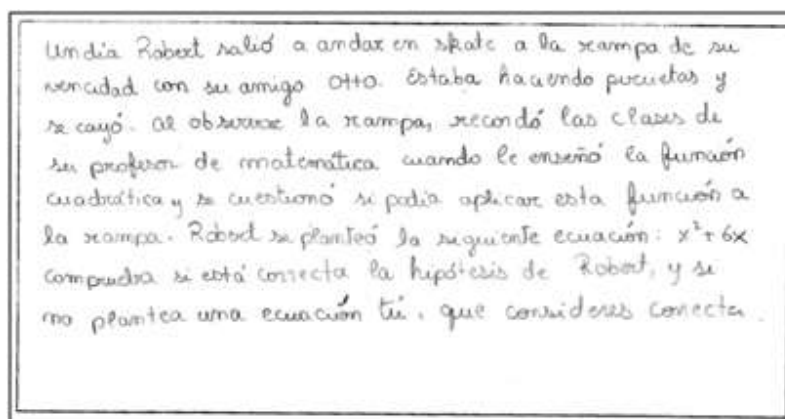 Un día Robert salió a andar en skate a la rampa de su
vencidad con su amigo Otto. Estaba haciendo piruetas y
se cayó. al observar la rampa, recordó las clases de
su profesor de matemática cuando le enseñó la función
cuadrática y se cuestionó si podia aplicar esta función a
la rampa. Robert se planteó la siguiente ecuación: x² + 6x
comprueba si está correcta la hipótesis de Robert, y si
no plantea una ecuación tú, que consideres correcta.